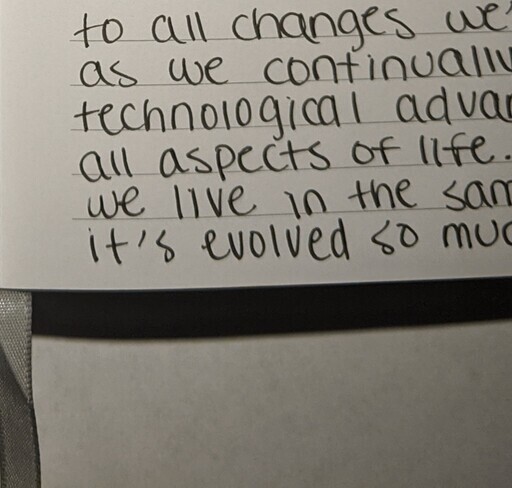 to all changes we'
as we continually
technological advan
all aspects of life.
we live in the sam
it's evolved so muc